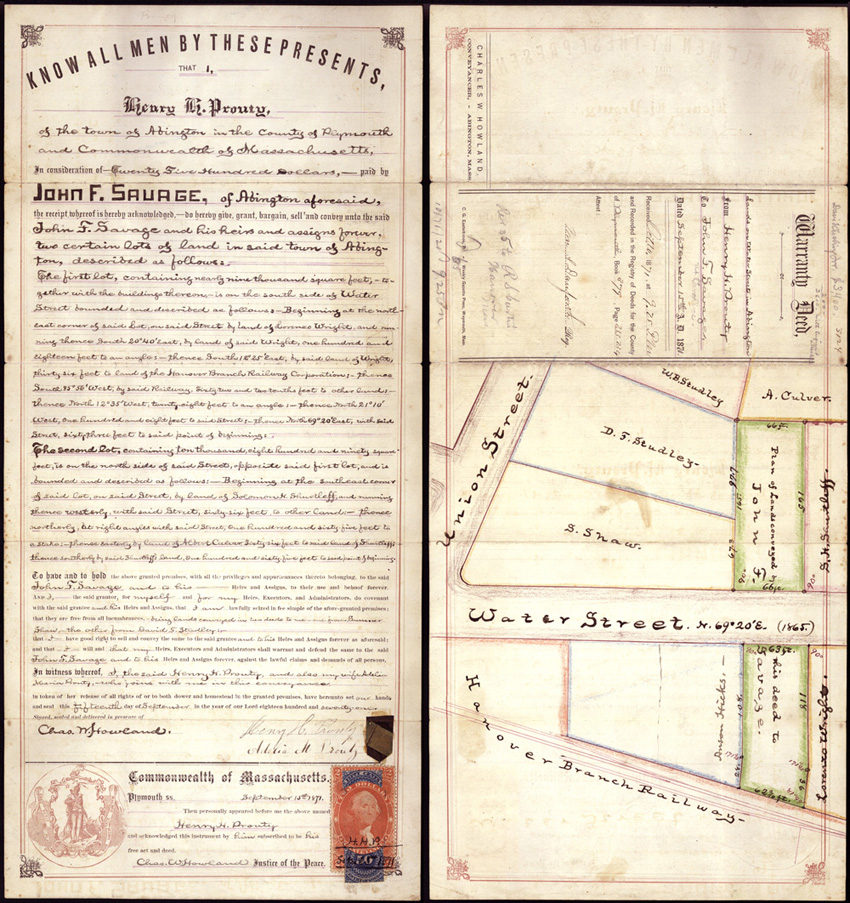 KNOW ALL MEN BY THESE PRESENTS,
THAT I,
Henry H. Prouty,
of the town of Abington in the County of Plymouth
and Commonwealth of Massachusetts,
In consideration of Twenty Five Hundred Dollars, paid by
JOHN F. SAVAGE, of Abington aforesaid,
the receipt whereof is hereby acknowledged,—do hereby give, grant, bargain, sell and convey unto the said
John F. Savage and his heirs and assigns forever,
two certain lots of land in said town of Abing-
ton, described as follows:
The first lot, containing nearly nine thousand square feet, - to-
gether with the buildings thereon, - is on the south side of Water
Street bounded and described as follows: - Beginning at the north-
east corner of said lot, on said Street by land of Lorenzo Wright, and run-
ning thence South 20°40' East, by land of said Wright, one hundred and
eighteen feet to an angle: - thence South 18°25' East, by said land of Wright,
thirty six feet to land of the Hanover Branch Railway Corporation: - thence
South West, by said Railway, sixty two and two tenths feet to other land: -
thence North 12°35' West, twenty eight feet to an angle: - thence North 21°10'
West, one hundred and eight feet to said Street: - thence North 69°20' East, with said
Street, sixty three feet to said point of beginning.
The second lot, containing ten thousand, eight hundred and ninety square
feet, is on the north side of said Street, opposite said first lot, and is
bounded and described as follows: - Beginning at the southeast corner
of said lot, on said Street, by land of Solomon H. Shurtleff, and running
thence westerly, with said Street, sixty six feet, to other land: - thence
northerly, at right angles with said Street, one hundred and sixty five feet to
a stake: - thence easterly by land of Albert Culver, sixty six feet to said land of Shurtleff:
thence southerly by said Shurtleff's land, one hundred and sixty five feet to said point of beginning.
To have and to hold the above granted premises, with all the privileges and appurtenances thereto belonging, to the said
John F. Savage and to his Heirs and Assigns, to their use and behoof forever.
And I, the said grantor, for myself and for my Heirs, Executors, and Administrators, do covenant
with the said grantee and his Heirs and Assigns, that I am lawfully seized in fee simple of the afore-granted premises;
that they are free from all incumbrances, - being lands conveyed in two deeds to me - one from Sumner
Shaw, the other from David F. Studley: -
that I have good right to sell and convey the same to the said grantee and to his Heirs and Assigns forever as aforesaid;
and that I will and that my Heirs, Executors and Administrators shall warrant and defend the same to the said
John F. Savage and to his Heirs and Assigns forever, against the lawful claims and demands of all persons.
In witness whereof, I, the said Henry H. Prouty, and also my wife
Maria Prouty, who joins with me in this conveyance
in token of her release of all rights of or to both dower and homestead in the granted premises, have hereunto set our hands
and seal this fifteenth day of September in the year of our Lord eighteen hundred and seventy one.
Signed, sealed and delivered in presence of
Chas. W. Howland.
Henry H. Prouty
M Prouty
Commonwealth of Massachusetts.
Plymouth ss. September 15th 1871.
Then personally appeared before me the above named
Henry H. Prouty
and acknowledged this instrument by him subscribed to be his
free act and deed.
Chas. W. Howland Justice of the Peace.
H.H.P.
Sept. 15th 1871
CHARLES W. HOWLAND,
CONVEYANCER, - ABINGTON, MASS.
Warranty Deed,
Lands on Water Street in Abington
From Henry H. Prouty
To John F. Savage
Dated September 15th A. D. 1871
Received Oct 1871, at 9.25
and Recorded in the Registry of Deeds for the County
of Plymouth, Book 379 Page
Attest:
Wm. S. Danforth Reg
Union Street.
W.B. Studley
A. Culver.
D. F. Studley.
S. Shaw.
66 ft.
165
165
Plan of Lands conveyed
John F.
by
this deed to
Savage.
66 ft.
90°
S. H. Shurtleff.
Water Street. N. 69°20'E. (1865)
63 ft.
90°
118
36
108
Anson Hicks.
Lorenzo Wright.
Hanover Branch Railway-